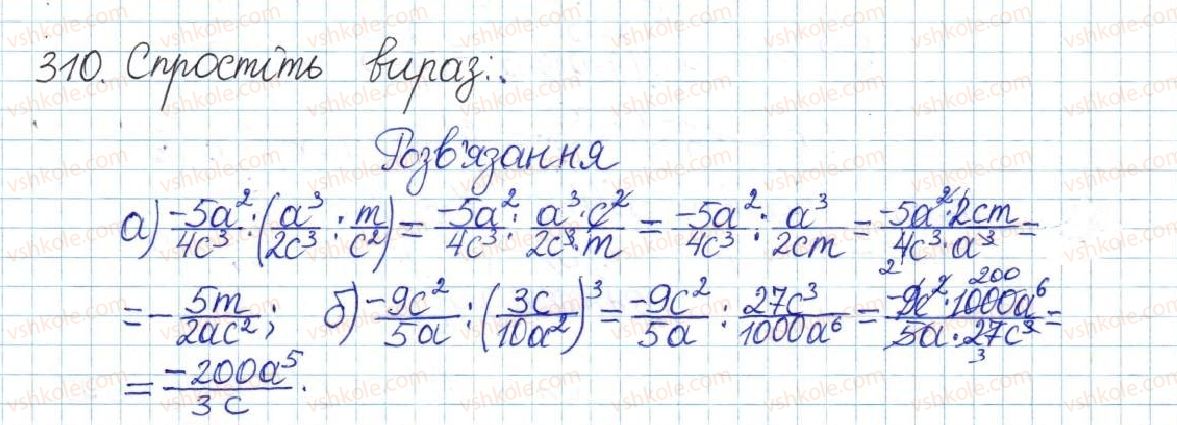 310. Спростіть вираз:.
Розв'язання
а) -5a²/4c³ : (a³/2c³ : m/c²) = -5a²/4c³ : a³·c²/2c³·m = -5a²/4c³ : a³/2cm = -5a²·2cm/4c³·a³ =
= -5m/2ac²; б) -9c²/5a : (3c/10a²)³ = -9c²/5a : 27c³/1000a⁶ = -9c²·1000a⁶/5a·27c³ =
= -200a⁵/3c.